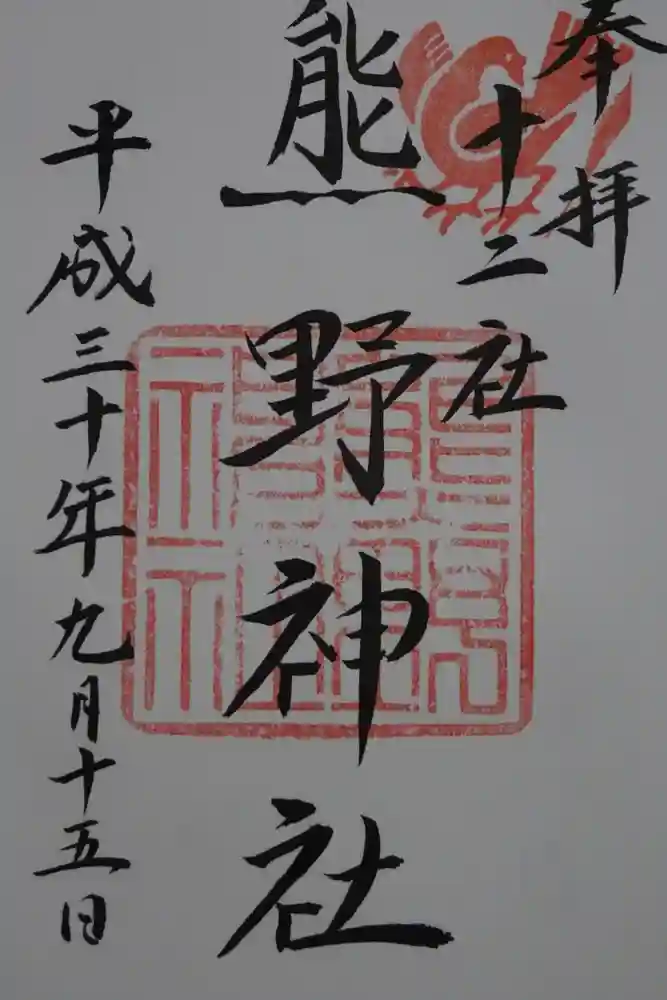 奉拝
十二社
熊野神社
平成三十年九月十五日